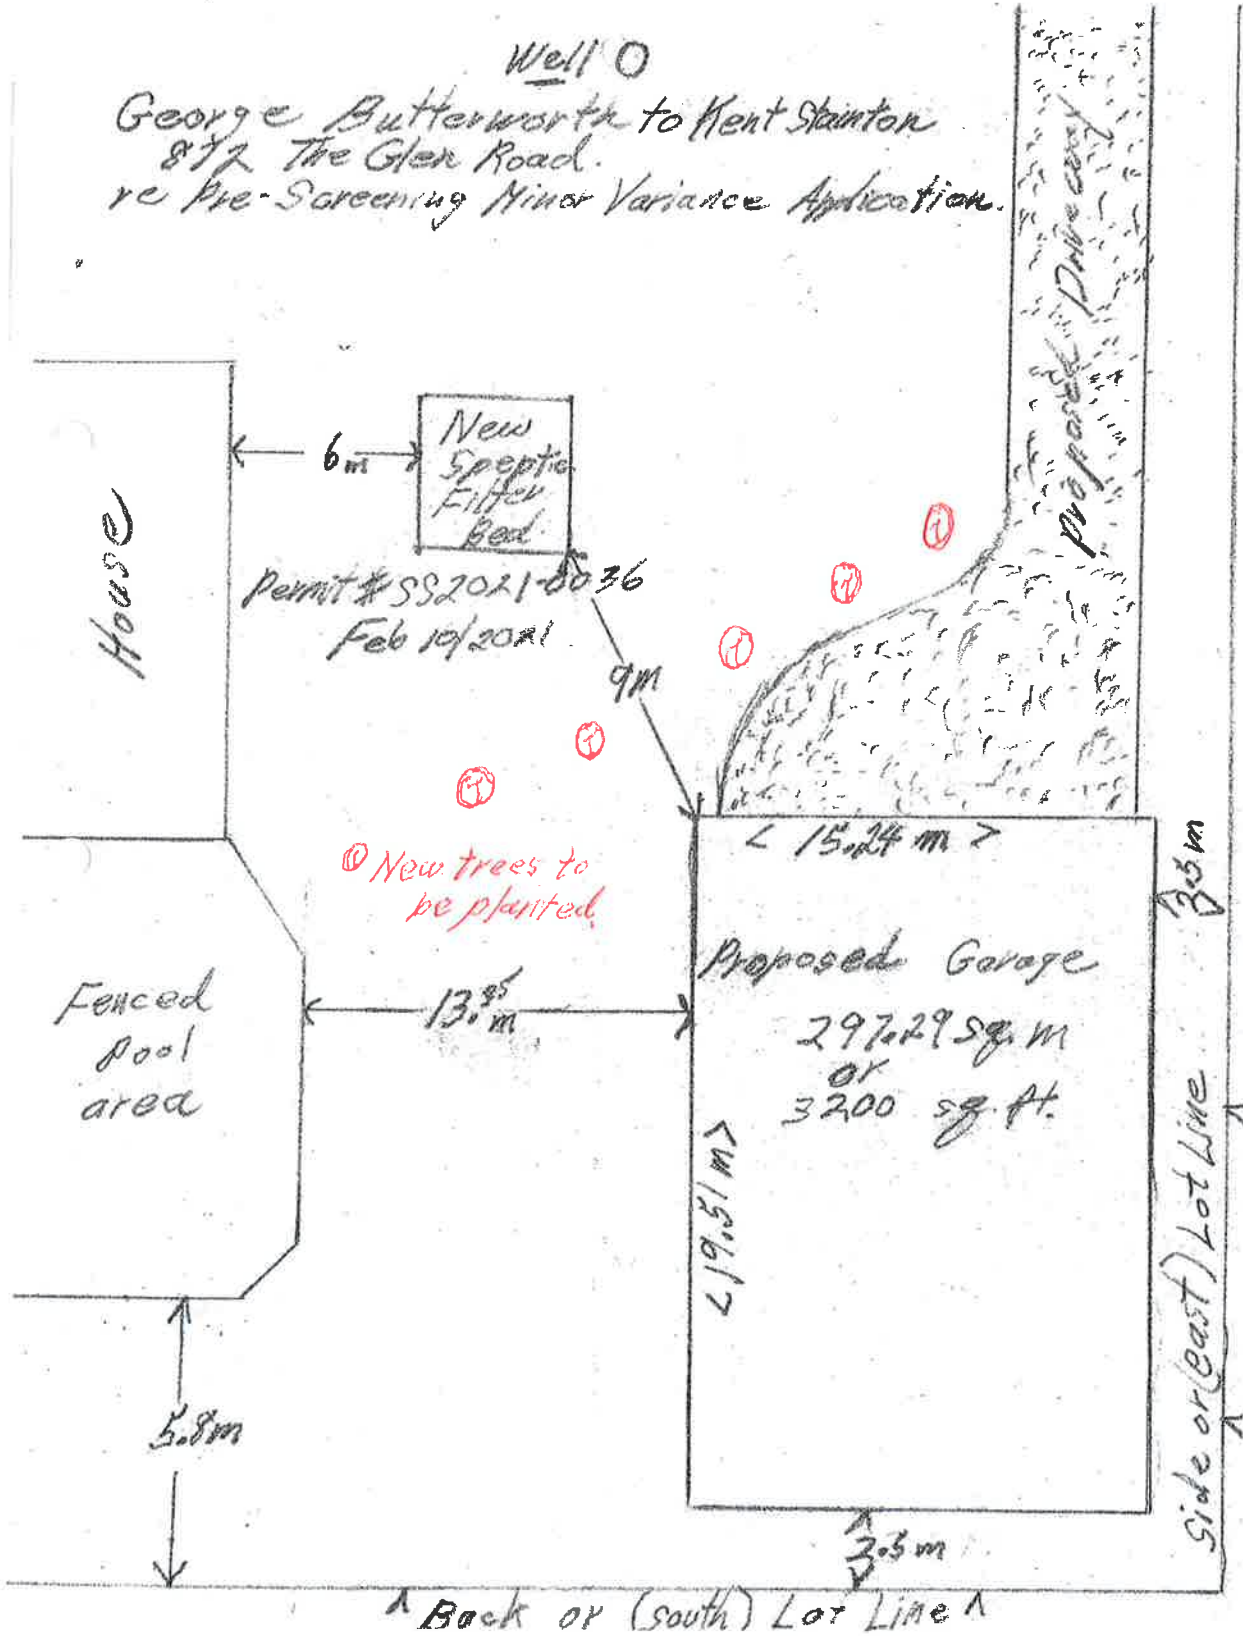 Well
George Butterworth to Kent Stainton
872 The Glen Road.
re Pre-Screening Minor Variance Application.
Proposed Driveway
House
6m
New
Speptic
Filter
Bed.
Permit # SS2021-0036
Feb 10/2021
9m
New trees to
be planted.
< 15.24 m >
3.5 m
Proposed Garage
297.29 sq. m
or
3200 sq. ft.
Fenced
Pool
area
13.85 m
< 19.51 m >
Side or (east) Lot Line
5.8m
3.5 m
Back or (south) Lot Line